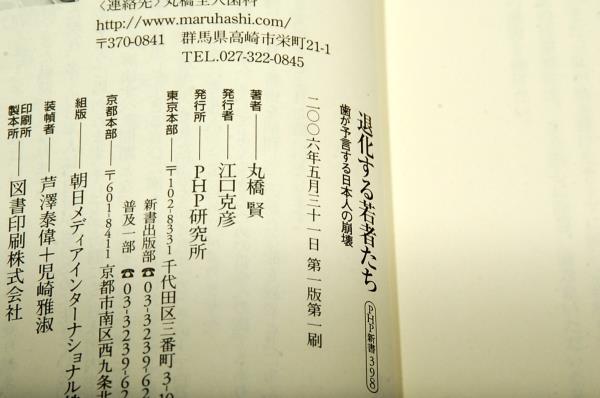 〈連絡先〉丸橋全人歯科
http://www.maruhashi.com/
〒370-0841 群馬県高崎市栄町21-1
TEL.027-322-0845
退化する若者たち
歯が予言する日本人の崩壊
PHP新書 398
二〇〇六年五月三十一日 第一版第一刷
著者――丸橋 賢
発行者――江口克彦
発行所――PHP研究所
東京本部――〒102-8331 千代田区三番町3-10
新書出版部 ☎03-3239-62
普及一部 ☎03-3239-62
京都本部――〒601-8411 京都市南区西九条北
組版――朝日メディアインターナショナル株
装幀者――芦澤泰偉＋児崎雅淑
印刷所
製本所――図書印刷株式会社